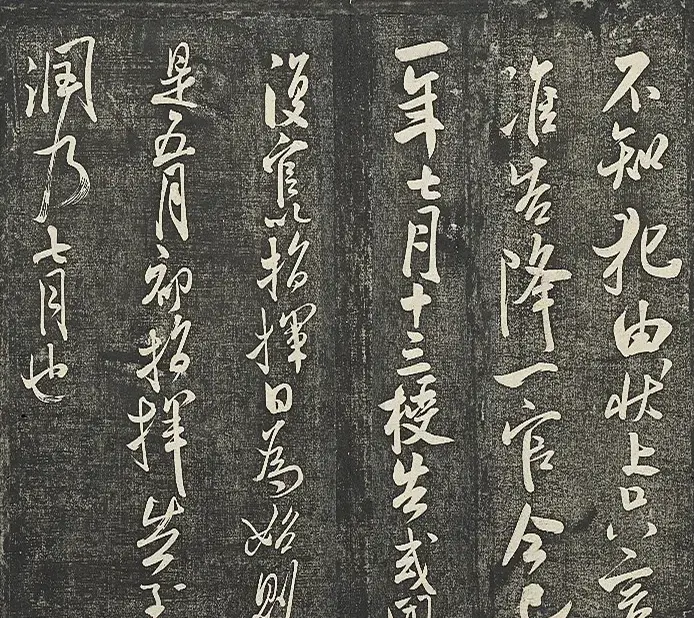 不知犯由狀上只言
准告降一官今已
一年七月十三授告或聞
復官以指揮日為始則
是五月初指揮告至
潤乃七月也